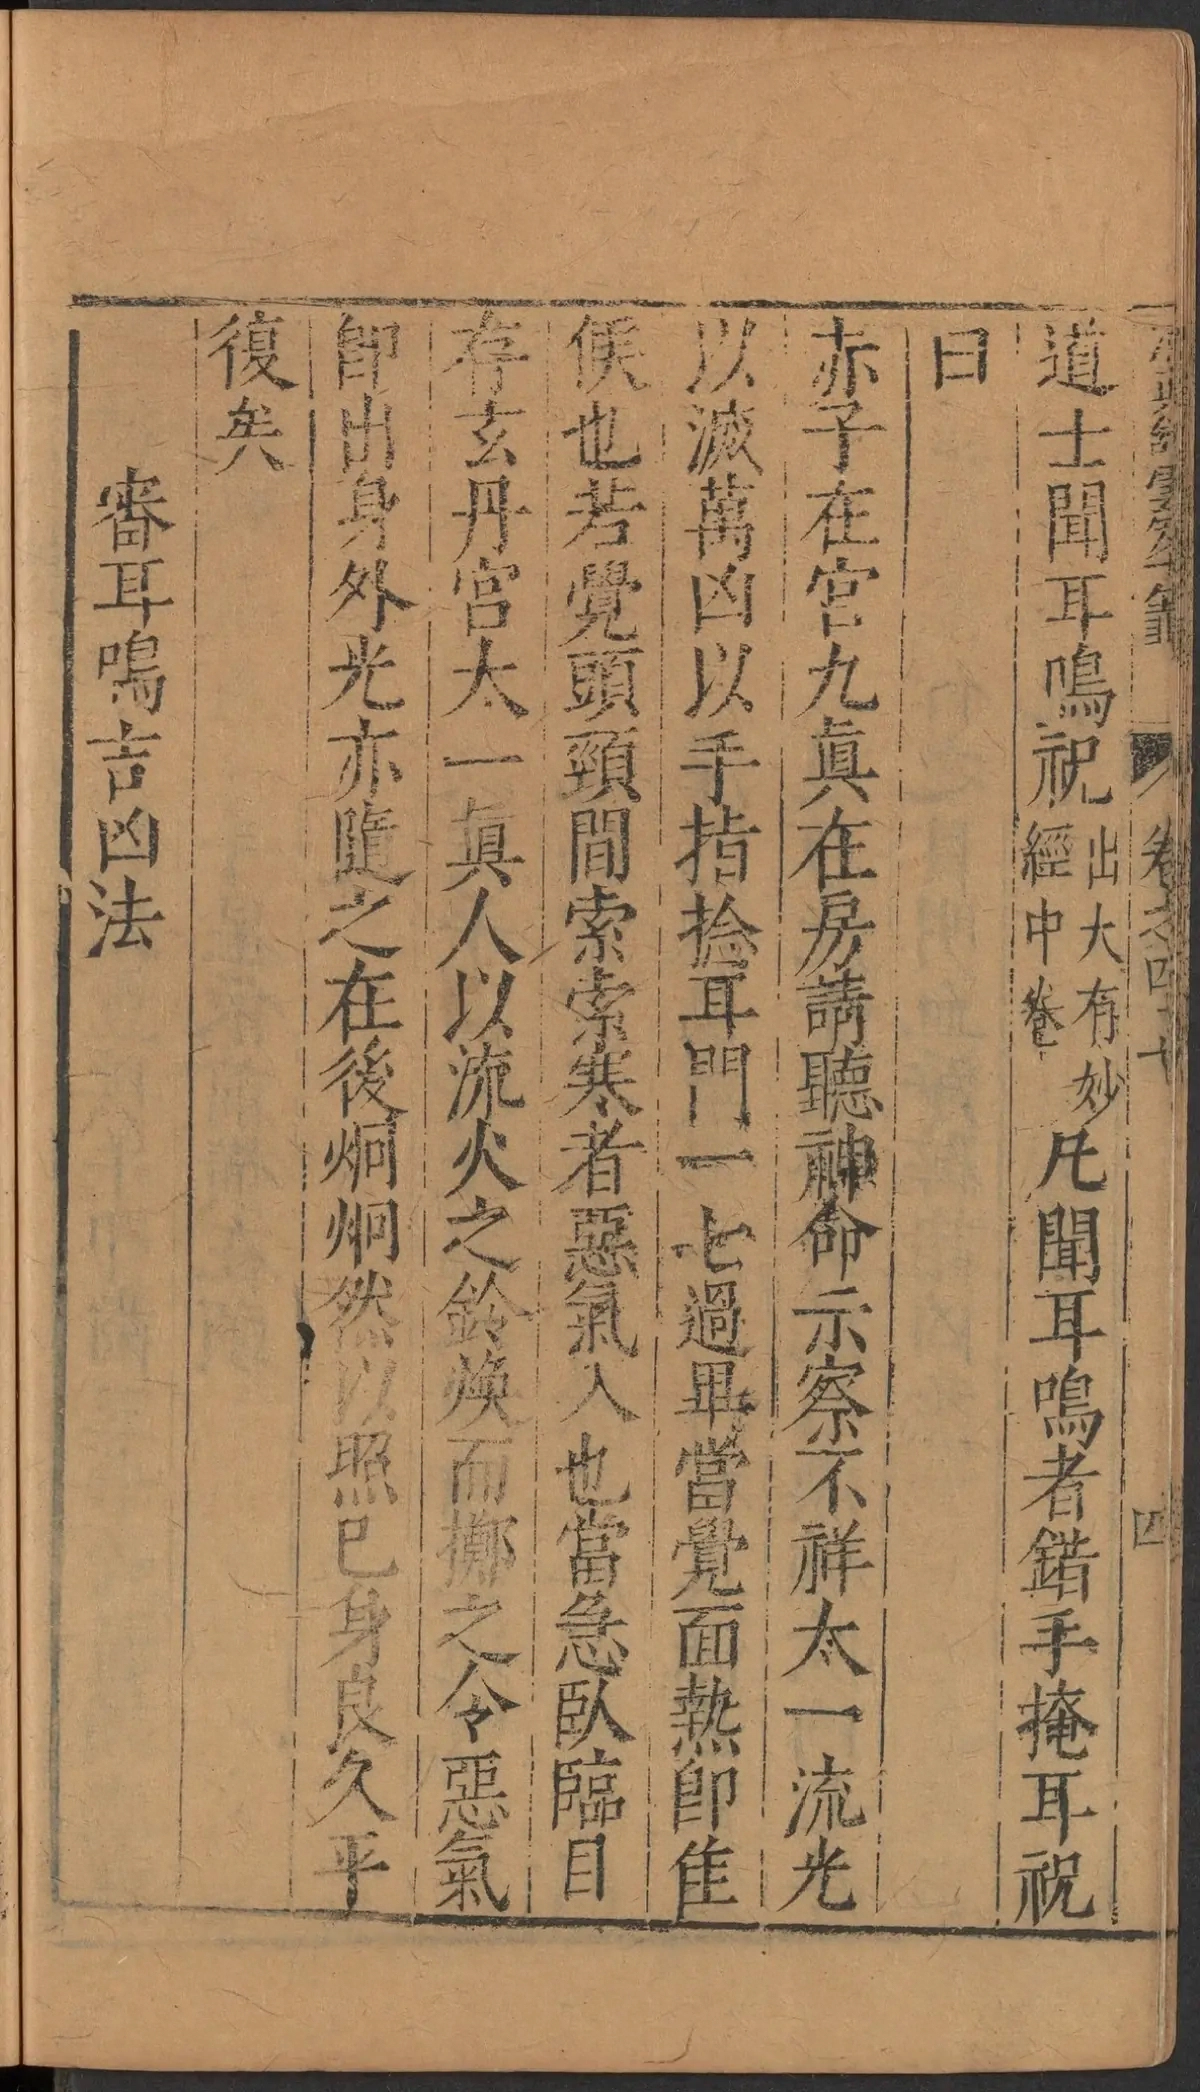 道士聞耳鳴祝出大有妙經中卷凡聞耳鳴者錯手掩耳祝
曰
赤子在宮九眞在房請聽神命示察不祥太一流光
以滅萬凶以手指捻耳門一七過畢當覺面熱卽佳
候也若覺頭頸間索索寒者惡氣入也當急臥臨目
存玄丹宮太一眞人以流火之鈴煥而擲之令惡氣
卽出身外光亦隨之在後炯炯然以照已身良久乎
復矣
審耳鳴吉凶法
卷之四十七
四